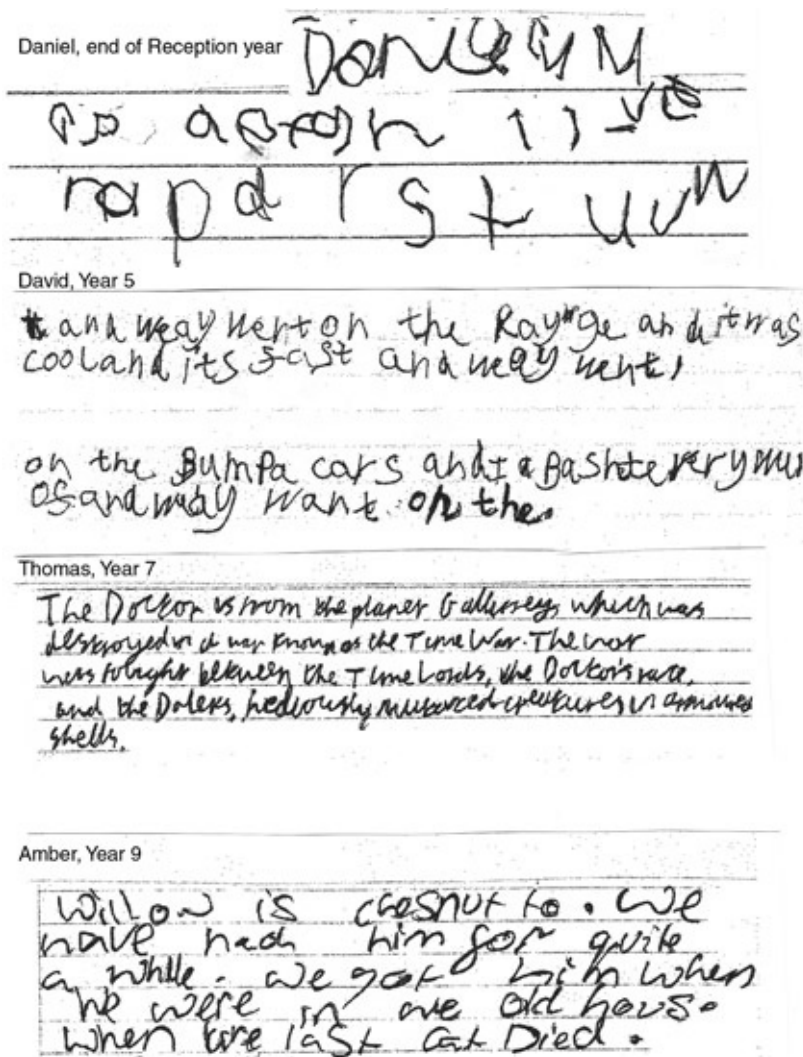 Daniel, end of Reception year
Daniel M
r a p d r s t u v w
David, Year 5
and weay went on the Raynge and it was
cool and its fast and weay went,
on the Bumpa cars and I a Basht every
of and weay want on the.
Thomas, Year 7
The Doctor is from the planet Gallerreys which was
destroyed in a war known as the Time War. The war
was fought between the Time Lords, the Doctor's race,
and the Daleks, hediously mutated creatures in armoured
shells.
Amber, Year 9
Willow is chesnut to. We
have had him for quite
a while. We got him when
we were in are old hous.
when are last cat Died.